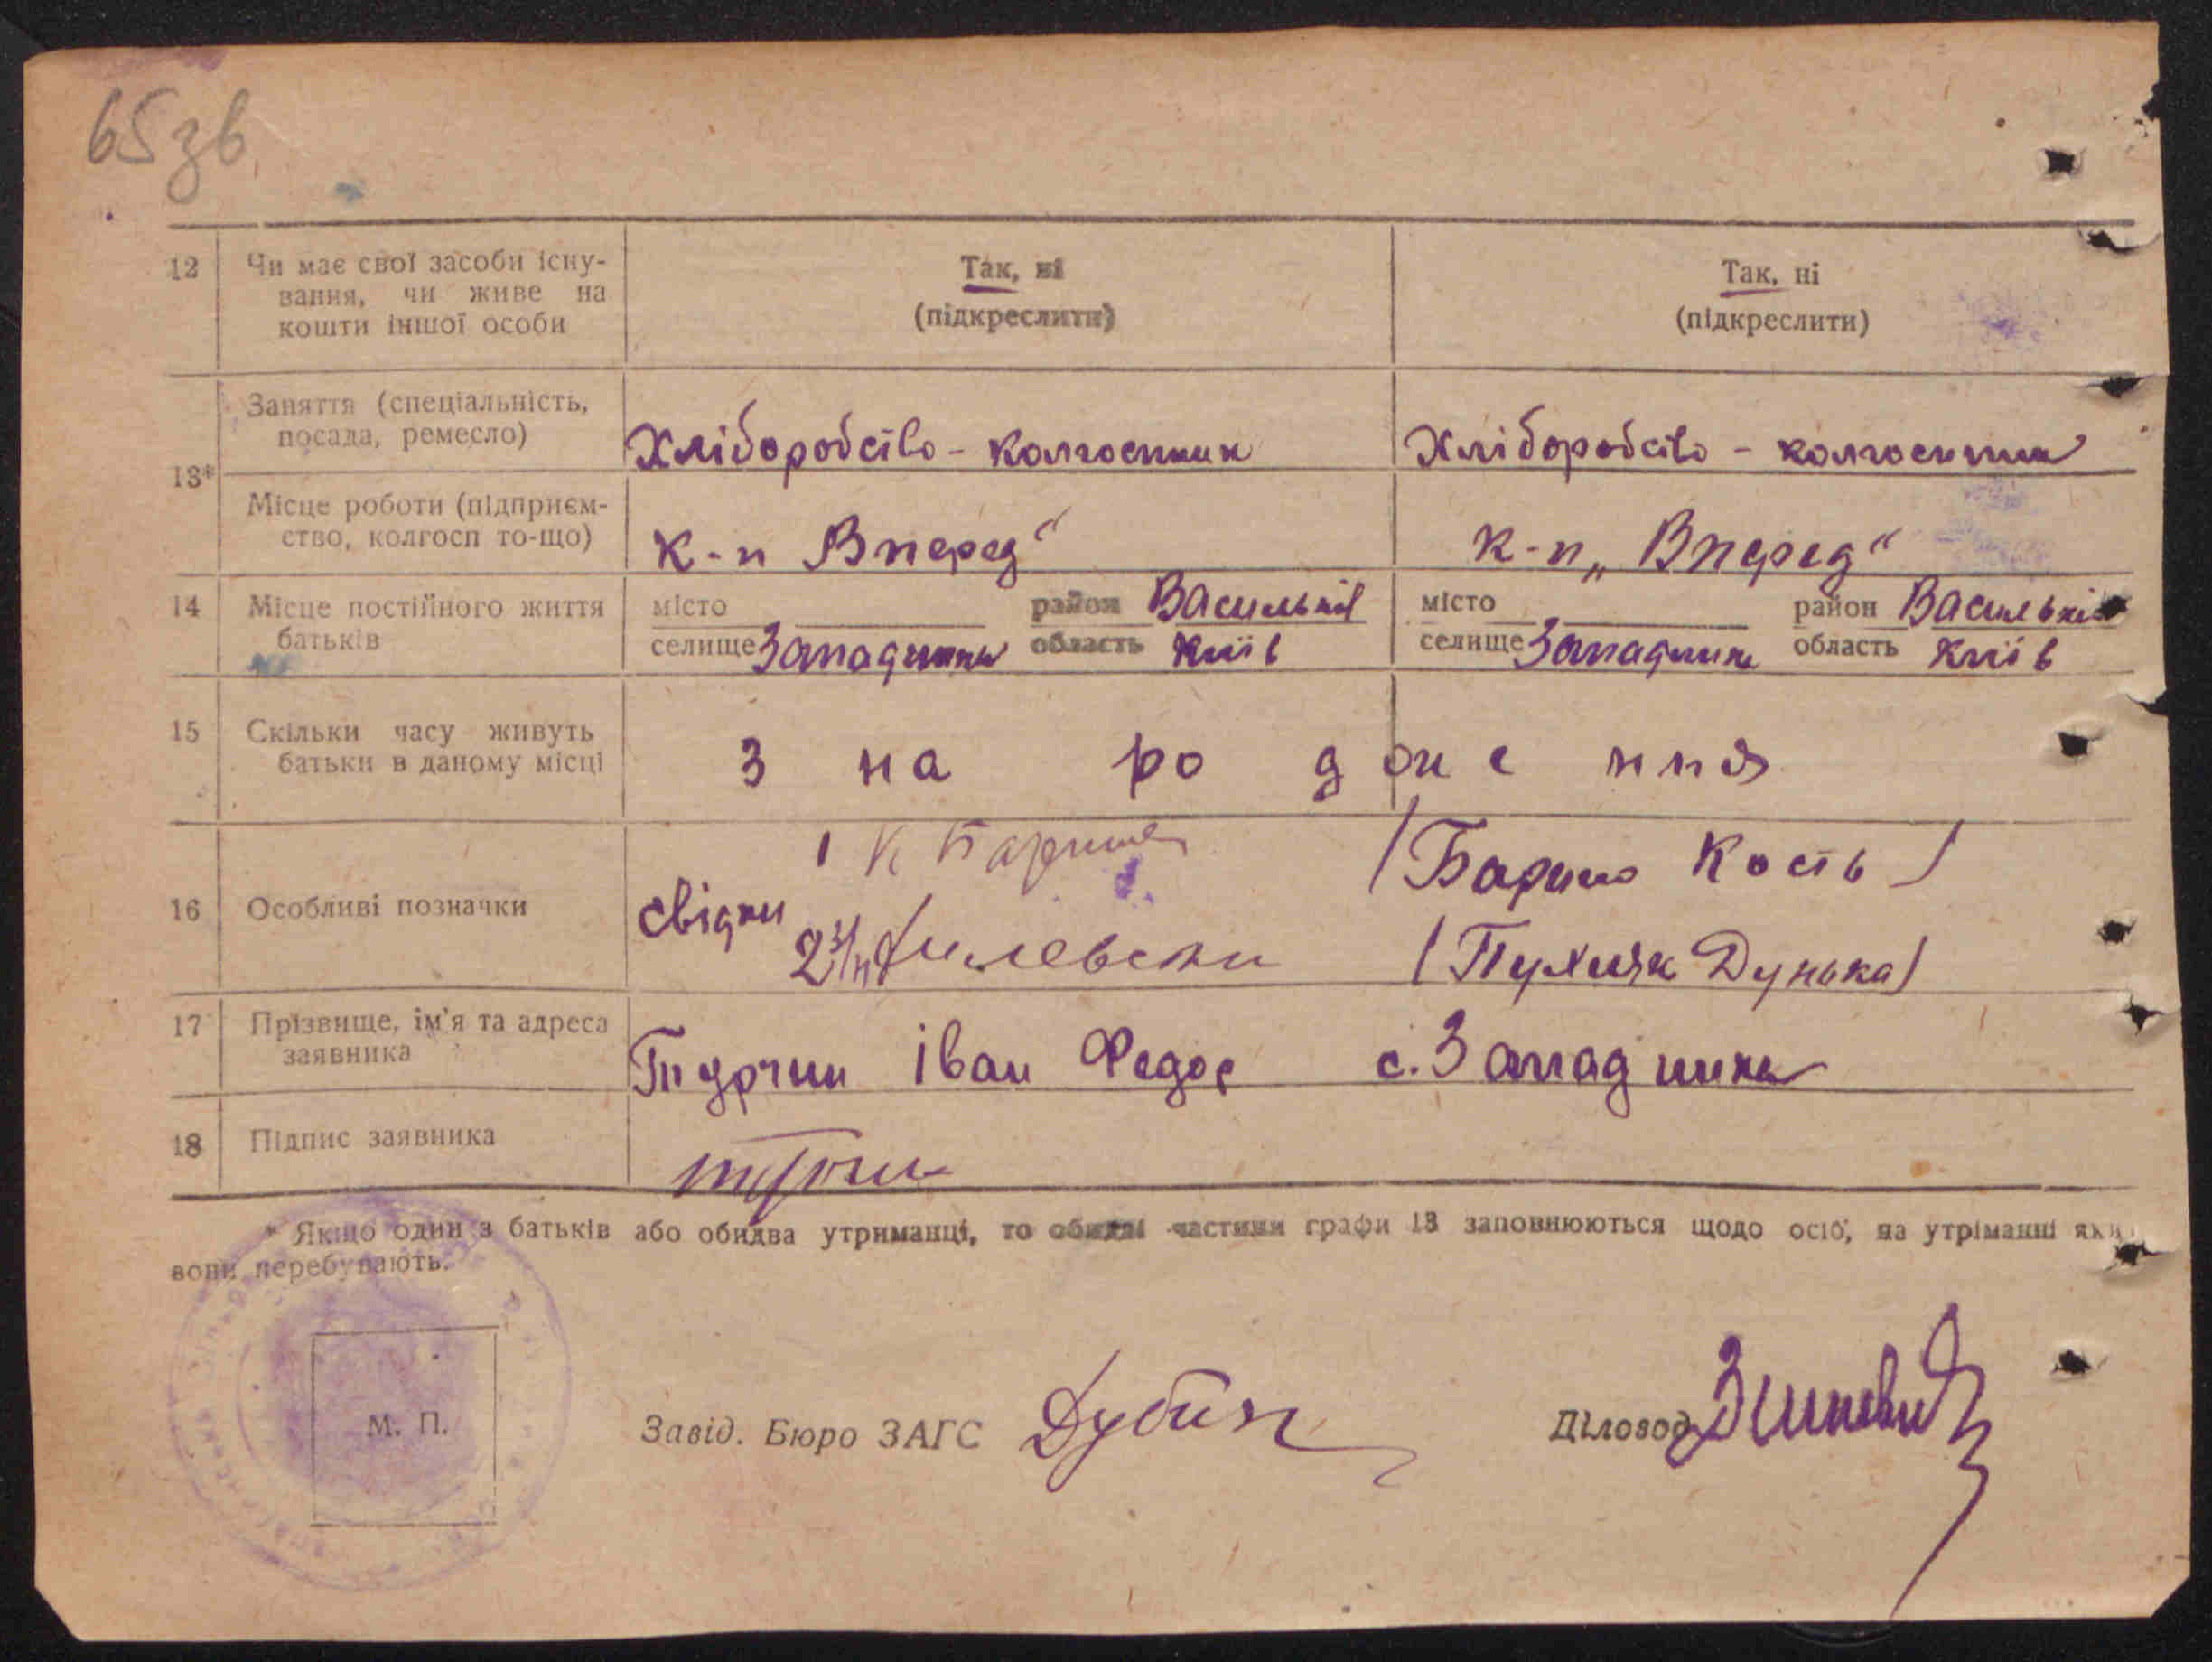 65зв
12 Чи має свої засоби існу-
вання, чи живе на
кошти іншої особи
Так, ні
(підкреслити)
Так, ні
(підкреслити)
13*
Заняття (спеціальність,
посада, ремесло)
Хліборобство - колгоспник
Хліборобство - колгоспник
Місце роботи (підприєм-
ство, колгосп то-що)
к-п Вперед"
к-п „Вперед"
14 Місце постійного життя
батьків
місто район Васильків
селище Западинка область Київ
місто район Васильків
селище Западинка область Київ
15 Скільки часу живуть
батьки в даному місці
з на ро д же ння
16 Особливі позначки
свідки
1 К
(Кость)
2
(Дунька)
17 Прізвище, ім'я та адреса
заявника
Турчин Іван Федор с. Западинка
18 Підпис заявника
* Якщо один з батьків або обидва утриманці, то обидві частини графи 13 заповнюються щодо осіб, на утріманні яки
вони перебувають.
М. П.
Завід. Бюро ЗАГС
Діловод